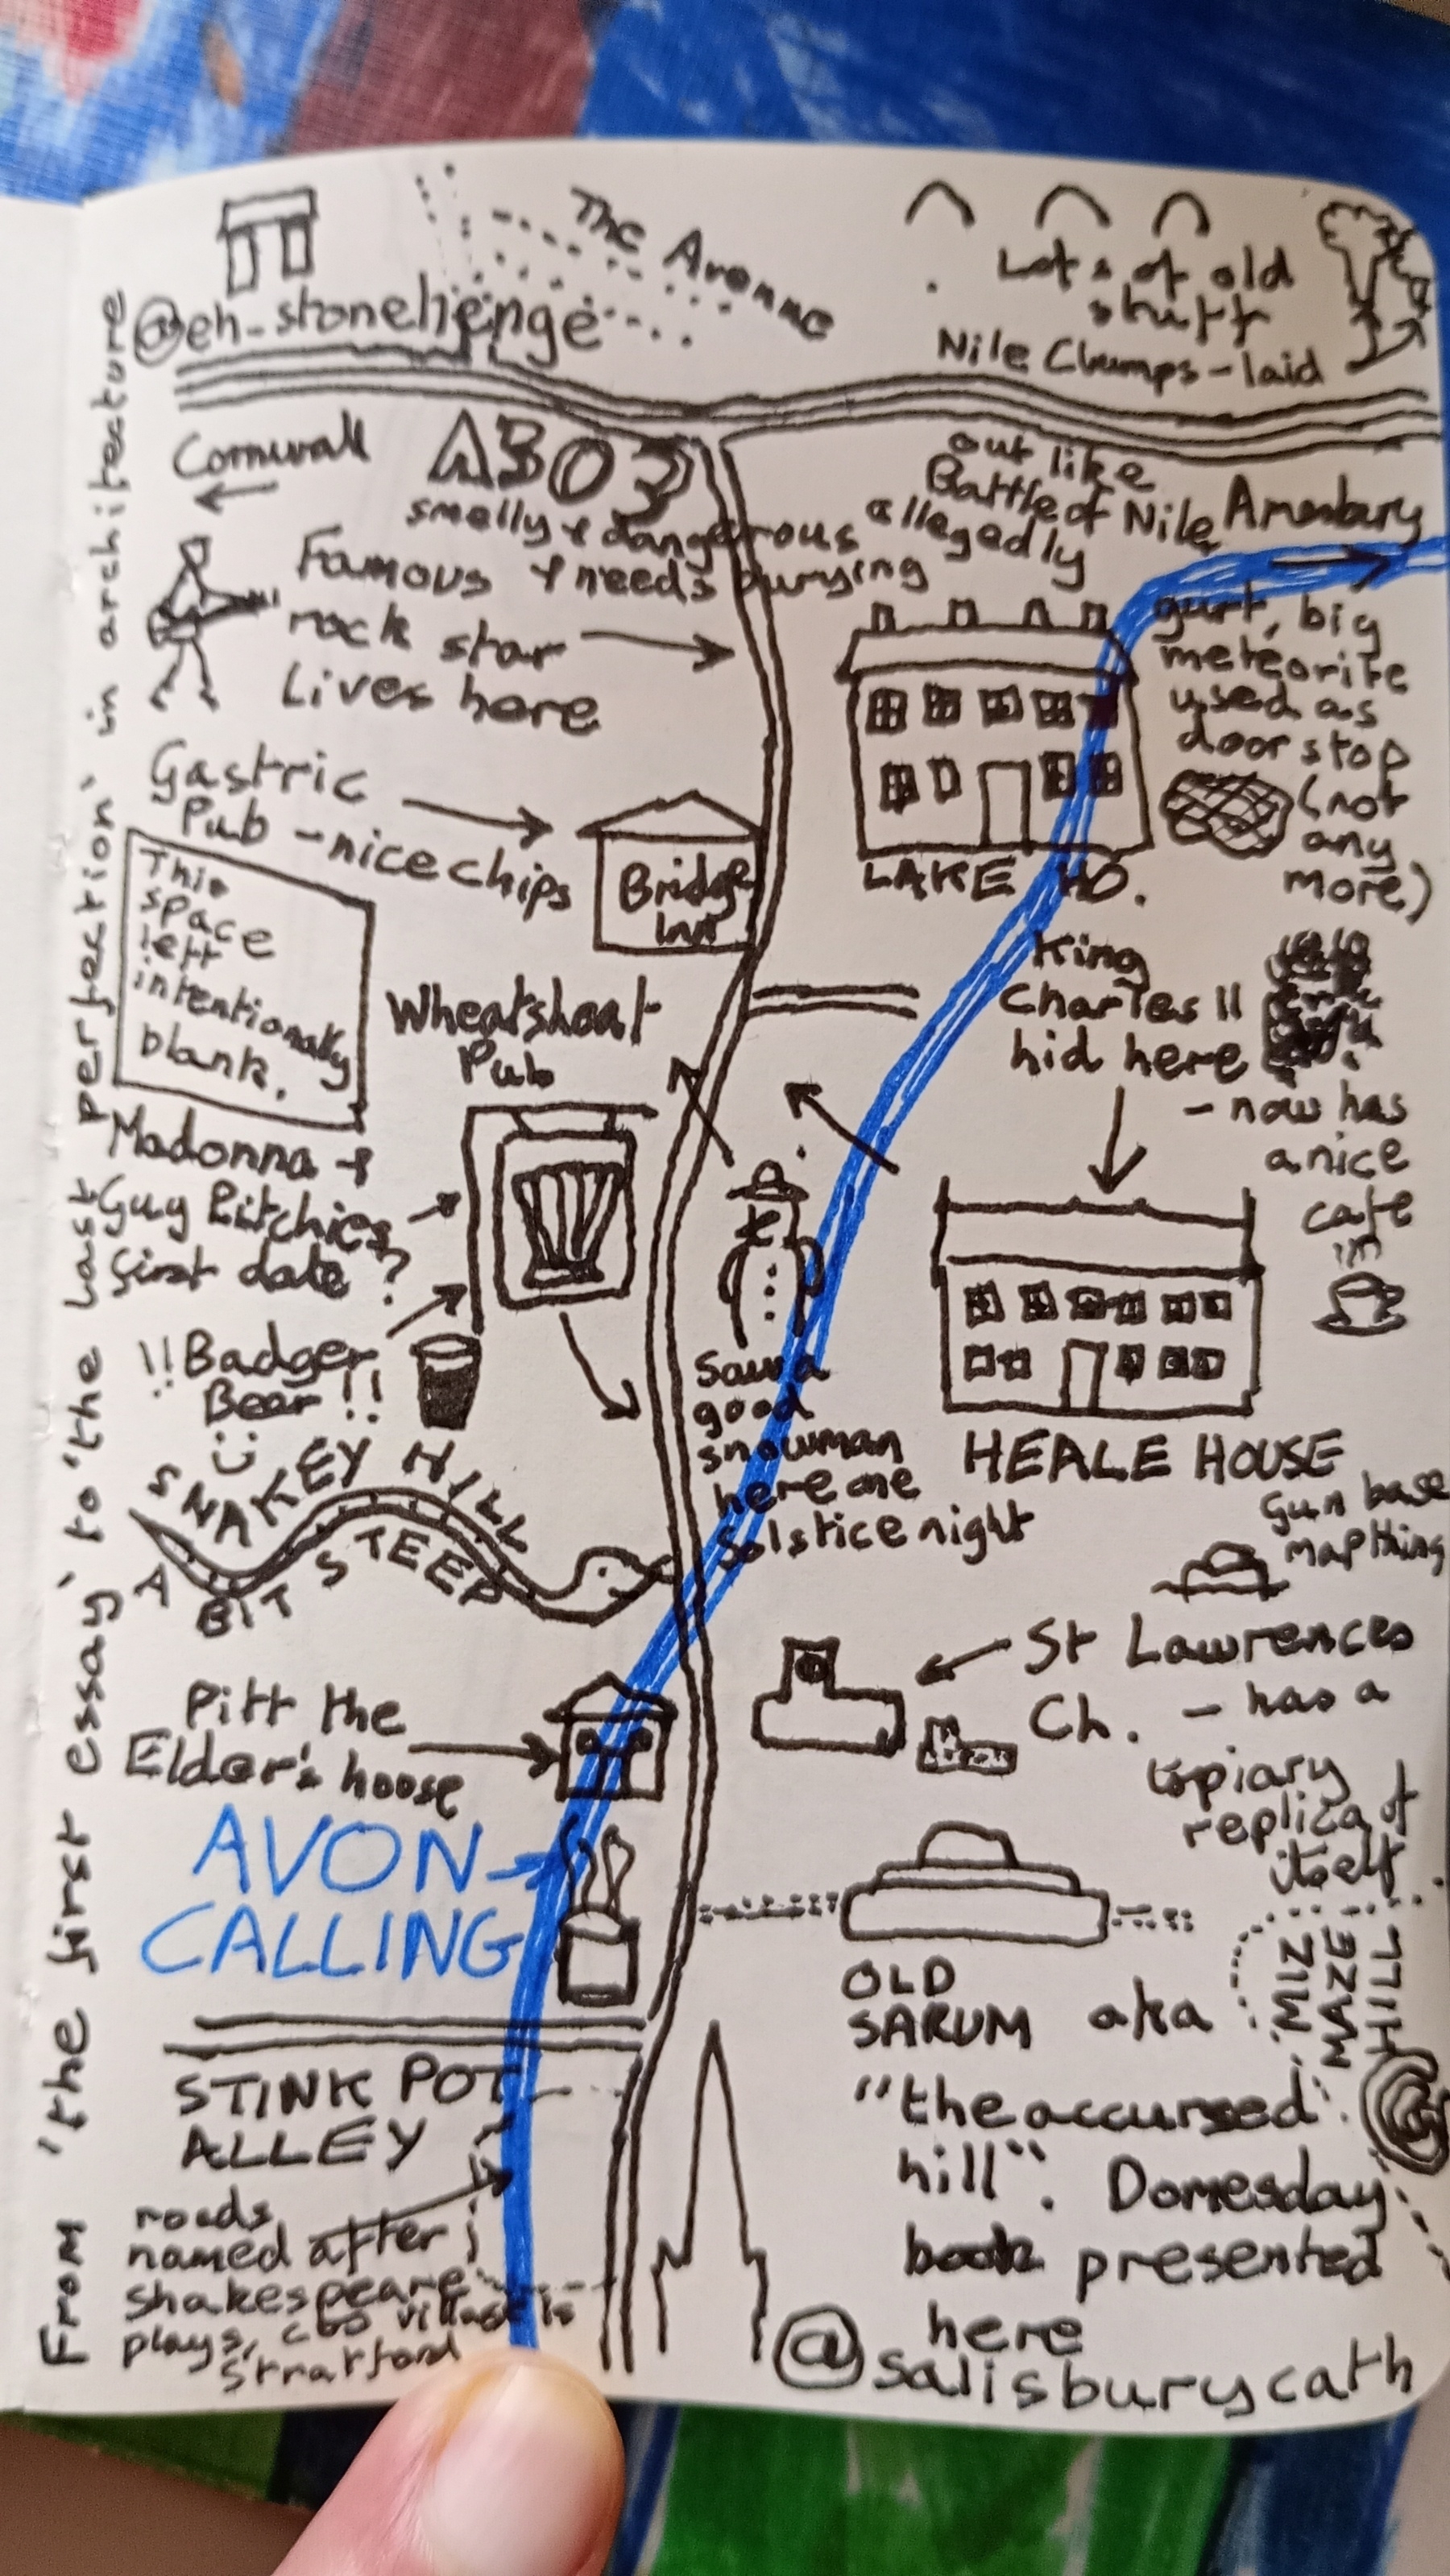 The Avenue
@eh_stonehenge
Lots of old
stuff
Nile Clumps - laid
out like
Battle of Nile,
allegedly
Cornwall
A303
smelly & dangerous
& needs burying
Amesbury
Famous
rock star
Lives here
gurt, big
meteorite
used as
door stop
(not
any
more)
LAKE HO.
Gastric
Pub - nice chips
Bridge
Inn
This
space
left
intentionally
blank.
Wheatsheaf
Pub
King
Charles II
hid here
- now has
a nice
cafe
Madonna &
Guy Ritchies
first date?
!!Badger
Beer!!
Saw a
good
snowman
here one
Solstice night
HEALE HOUSE
SNAKEY HILL
A BIT STEEP
Gun base
map thing
St Lawrences
Ch. - has a
topiary
replica of
itself.
Pitt the
Elder's hoose
AVON
CALLING
OLD
SARUM aka
"the accursed
hill". Domesday
book presented
here
MIZ
MAZE
HILL
STINK POT
ALLEY
roads
named after
Shakespeare
plays, cos village is
Stratford
@salisburycath
From 'the first essay' to 'the last perfection' in architecture